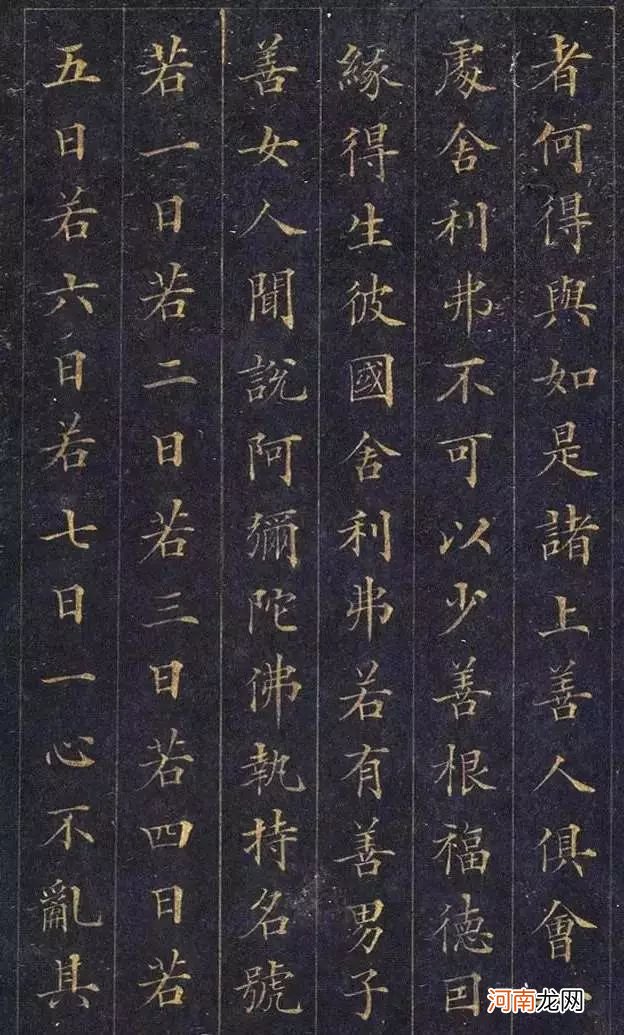 者何得與如是諸上善人俱會
處舍利弗不可以少善根福德因
緣得生彼國舍利弗若有善男子
善女人聞說阿彌陀佛執持名號
若一日若二日若三日若四日若
五日若六日若七日一心不亂其
河南龙网